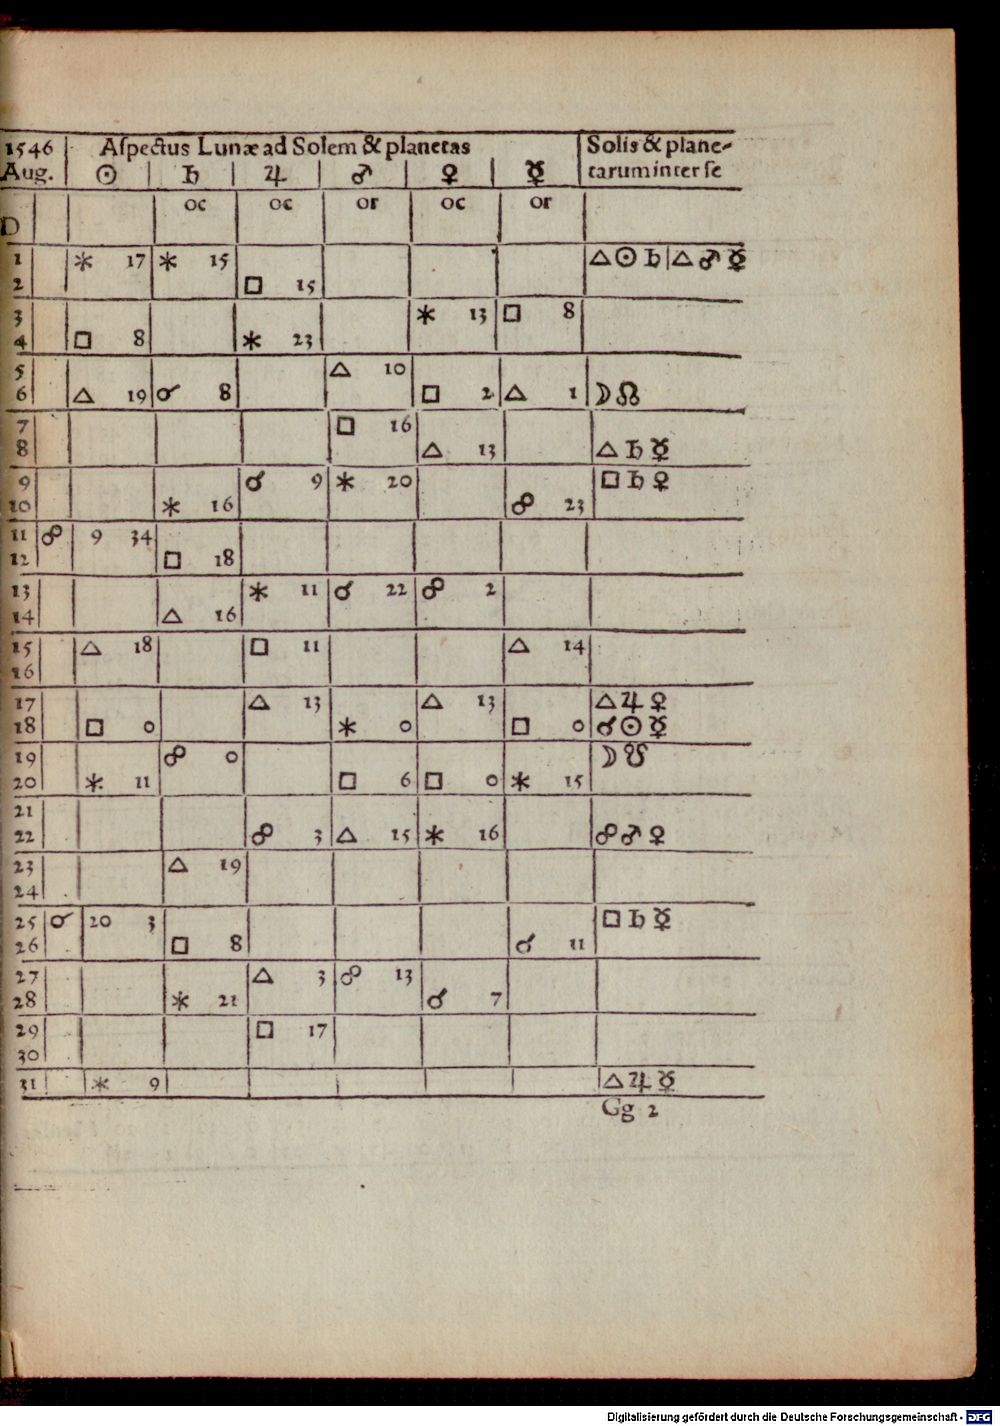 1546 Aspectus Lunæ ad Solem & planetas Solis & plane-
Aug. ☉ ♄ ♃ ♂ ♀ ☿ tarum inter se
D oc oc or oc or
1 ⚹ 17 ⚹ 15 △ ☉ ♄ △ ♂ ☿
2 □ 15
3 ⚹ 13 □ 8
4 □ 8 ⚹ 23
5 △ 10
6 △ 19 ☌ 8 □ 2 △ 1 ☽ ☊
7 □ 16
8 △ 13 △ ♄ ☿
9 ☌ 9 ⚹ 20 □ ♄ ♀
10 ⚹ 16 ☍ 23
11 ☍ 9 34
12 □ 18
13 ⚹ 11 ☌ 22 ☍ 2
14 △ 16
15 △ 18 □ 11 △ 14
16
17 △ 13 △ 13 △ ♃ ♀
18 □ 0 ⚹ 0 □ 0 ☌ ☉ ☿
19 ☍ 0 ☽ ☋
20 ⚹ 11 □ 6 □ 0 ⚹ 15
21
22 ☍ 3 △ 15 ⚹ 16 ☍ ♂ ♀
23 △ 19
24
25 ☌ 20 3 □ ♄ ☿
26 □ 8 ☌ 11
27 △ 3 ☍ 13
28 ⚹ 21 ☌ 7
29 □ 17
30
31 ⚹ 9 △ ♃ ☿
Gg 2
Digitalisierung gefördert durch die Deutsche Forschungsgemeinschaft - DFG